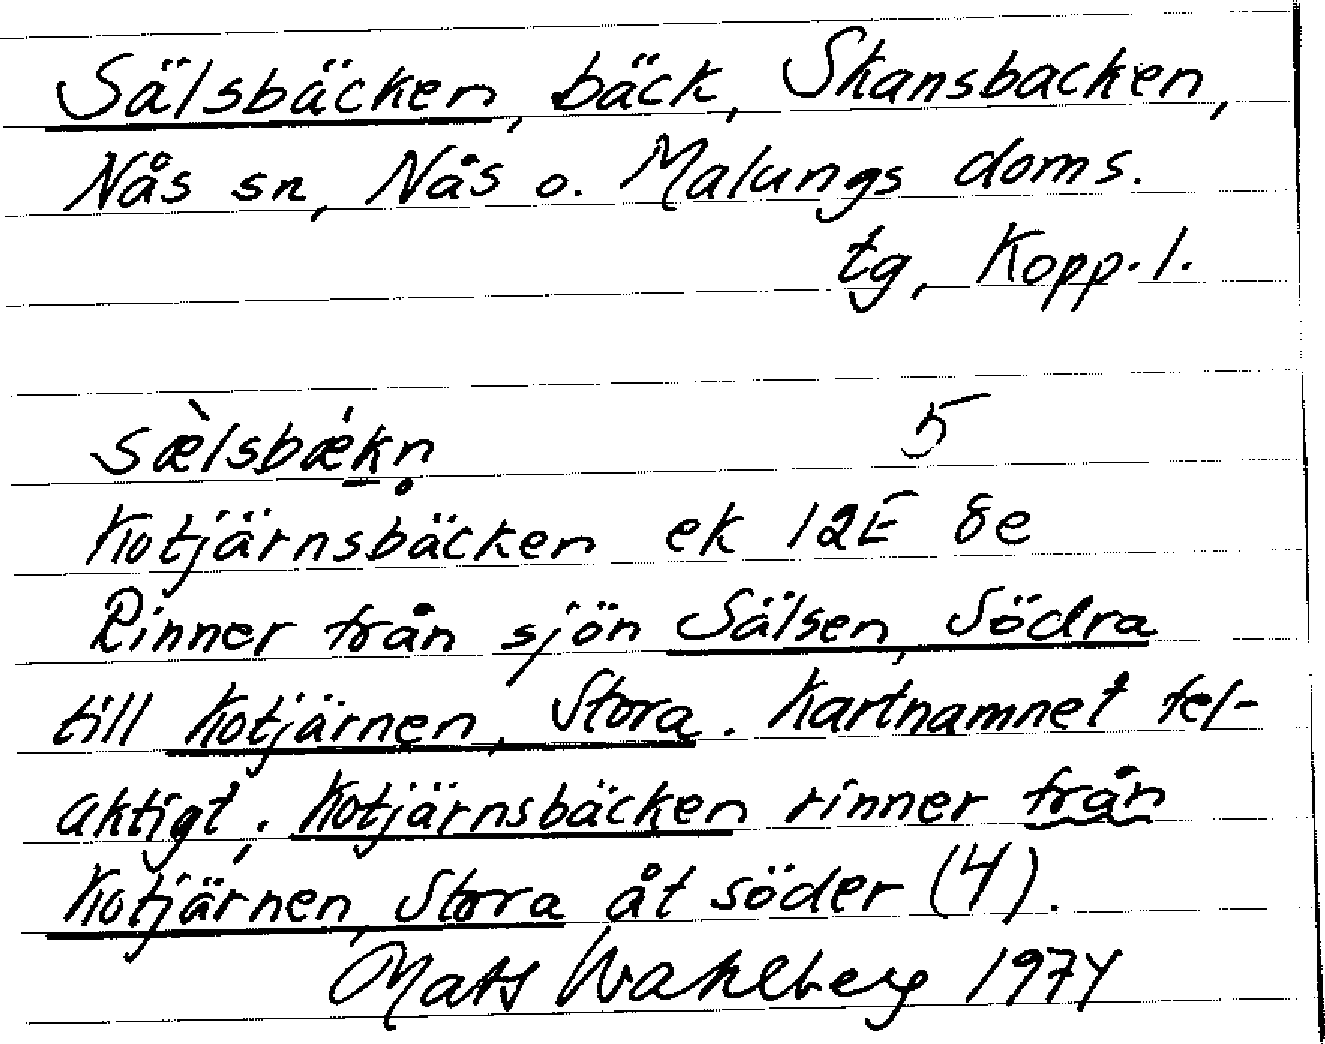 Sälsbäcken, bäck, Skansbacken,
Nås sn, Nås o. Malungs doms.
tg, Kopp. l.
sæ̀lsbǽkn̥ 5
Kotjärnsbäcken ek 12E 8e
Rinner från sjön Sälsen, Södra
till Kotjärnen, Stora. Kartnamnet fel-
aktigt; Kotjärnsbäcken rinner från
Kotjärnen, Stora åt söder (4).
Mats Wahlberg 1974